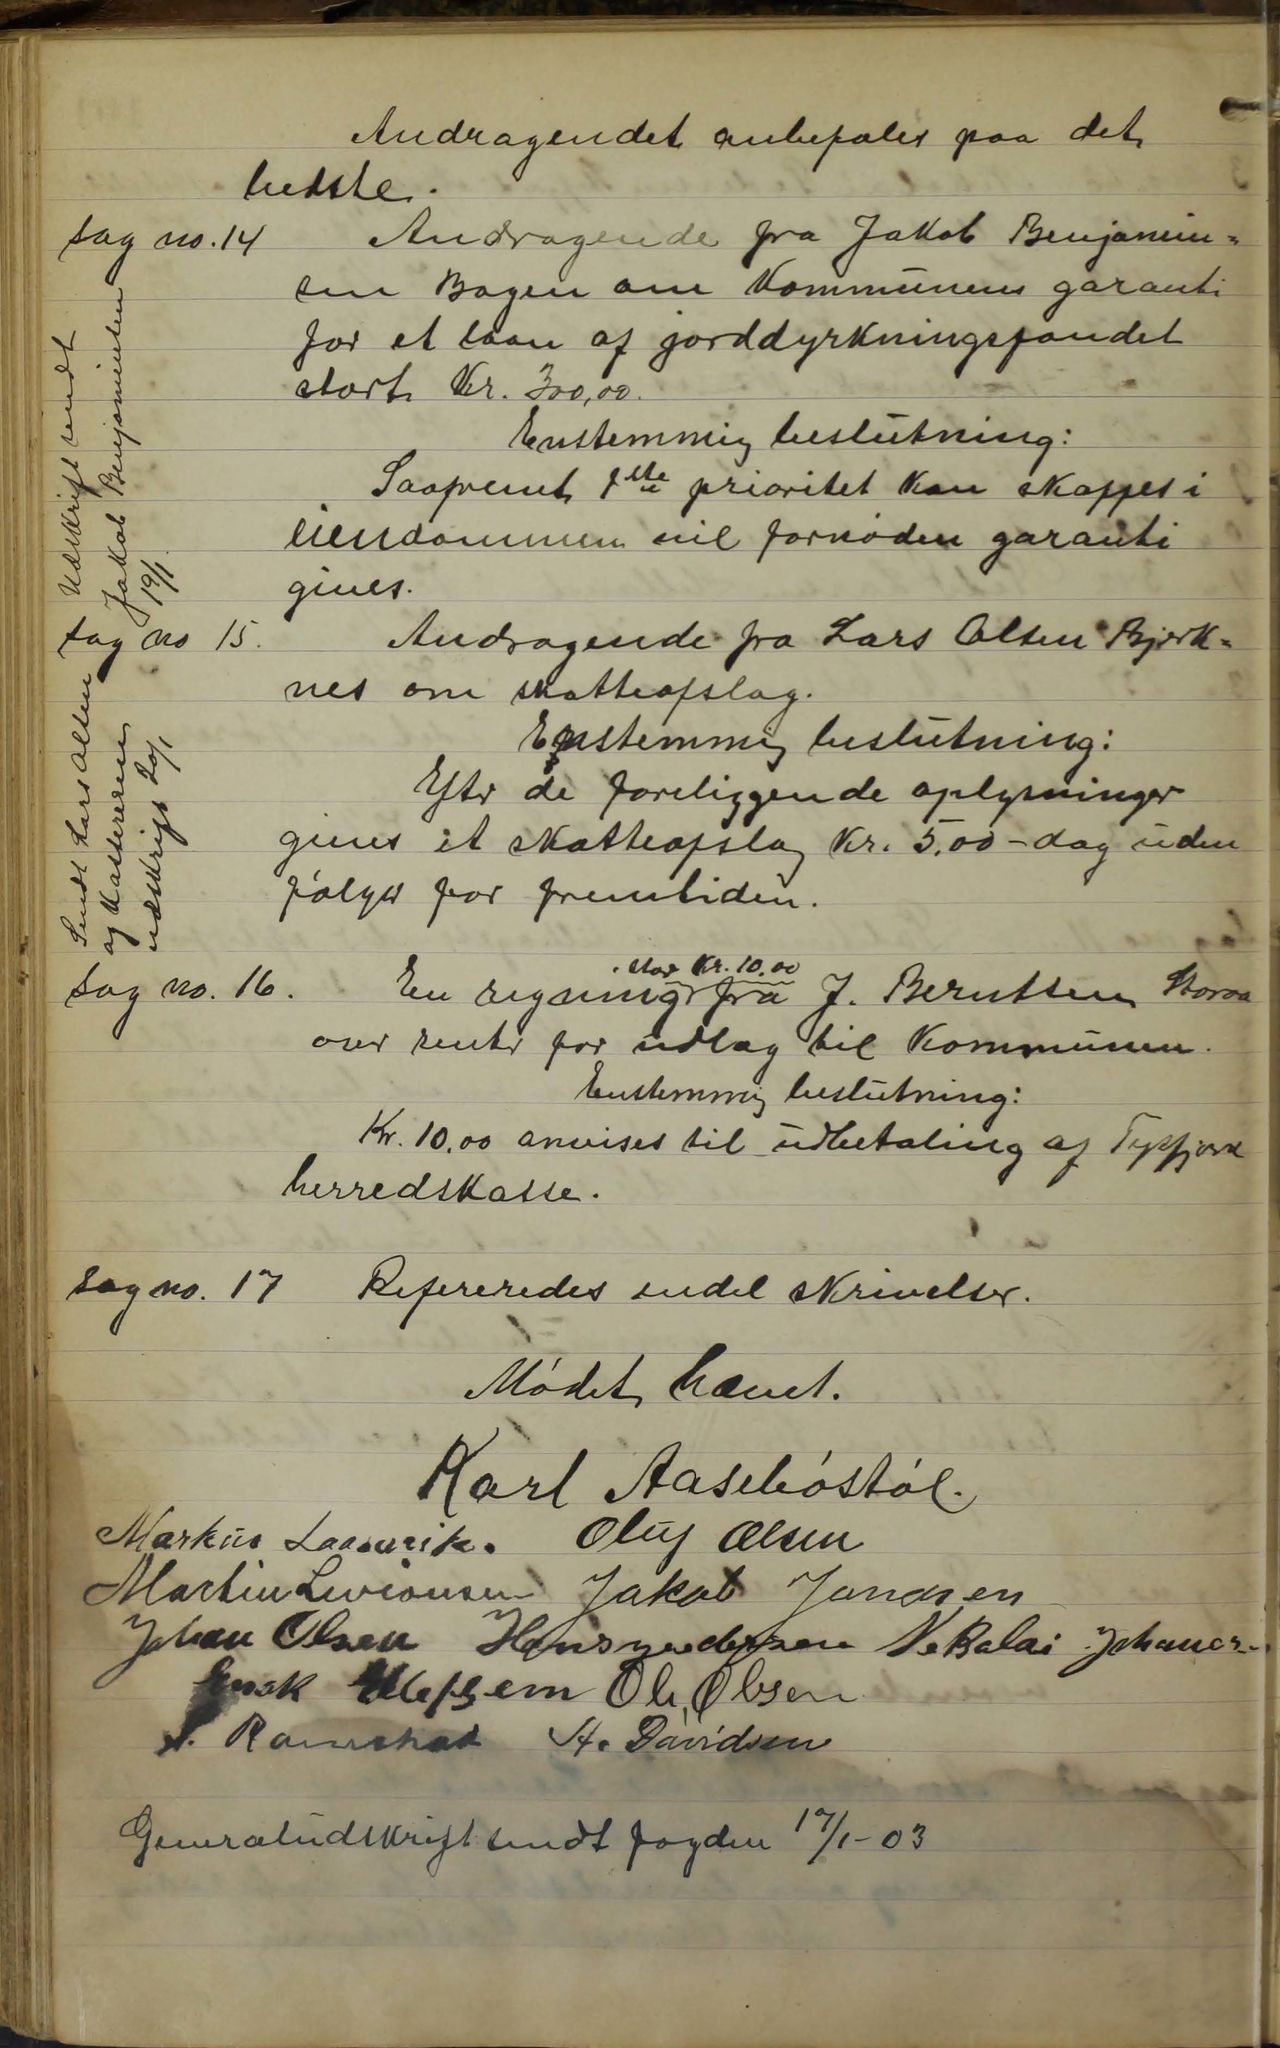 Andragendet anbefales paa det
bedste.
Sag no. 14 Andragende fra Jakob Benjamin=
sen Bogen om Kommunens garanti
for et laan af jorddyrkningsfondet
stort Kr. 300,00.
Enstemmig beslutning:
Saafremt 1ste prioritet kan skaffes i
eiendommen vil fornøden garanti
gives.
Udskrift sendt
Jakob Benjaminsen
19/1
Sag no 15. Andragende fra Lars Olsen Bjerk=
nes om skatteafslag.
Enstemmig beslutning:
Efter de foreliggende oplysninger
gives et skatteafslag Kr. 5,00 - dog uden
følger for fremtiden.
Sendt Lars Olsen
og Kassereren
udskrift 20/1
stor Kr. 10,00
Sag no. 16. En regning fra J. Berntsen Storaa
over renter for udlæg til Kommunen.
Enstemmig beslutning:
Kr. 10,00 anvises til udbetaling af Tysfjord
herredskasse.
Sag no. 17 Refereredes endel skrivelser.
Mødet hævet.
Karl Aasebøstøl.
Markus Olug Olsen
Martin Levionsen Jakob Jonassen
Johan Olsen Nekolai Johans-
Ole Olsen
H. Davidsen
Generaludskrift sendt fogden 17/1-03